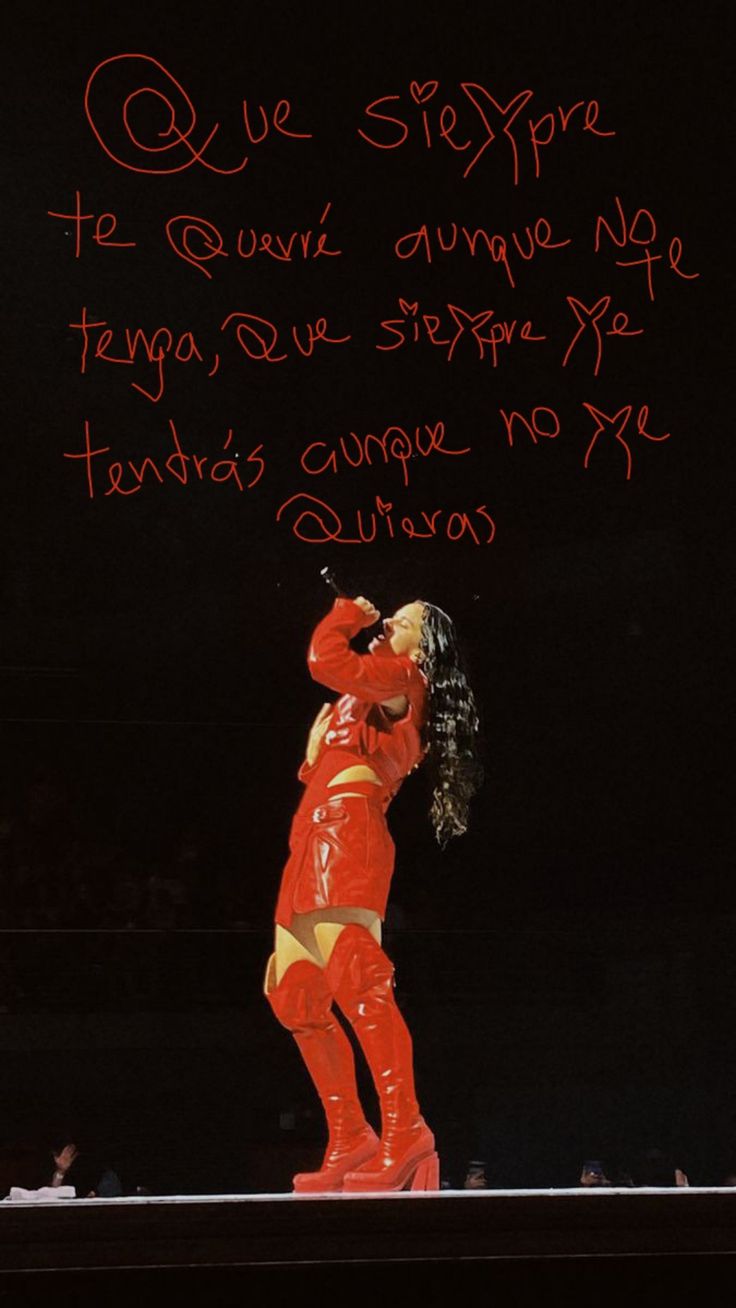 Que sieMpre
te Querré aunque No te
tenga, Que sieMpre Me
tendrás aunque no Me
Quieras